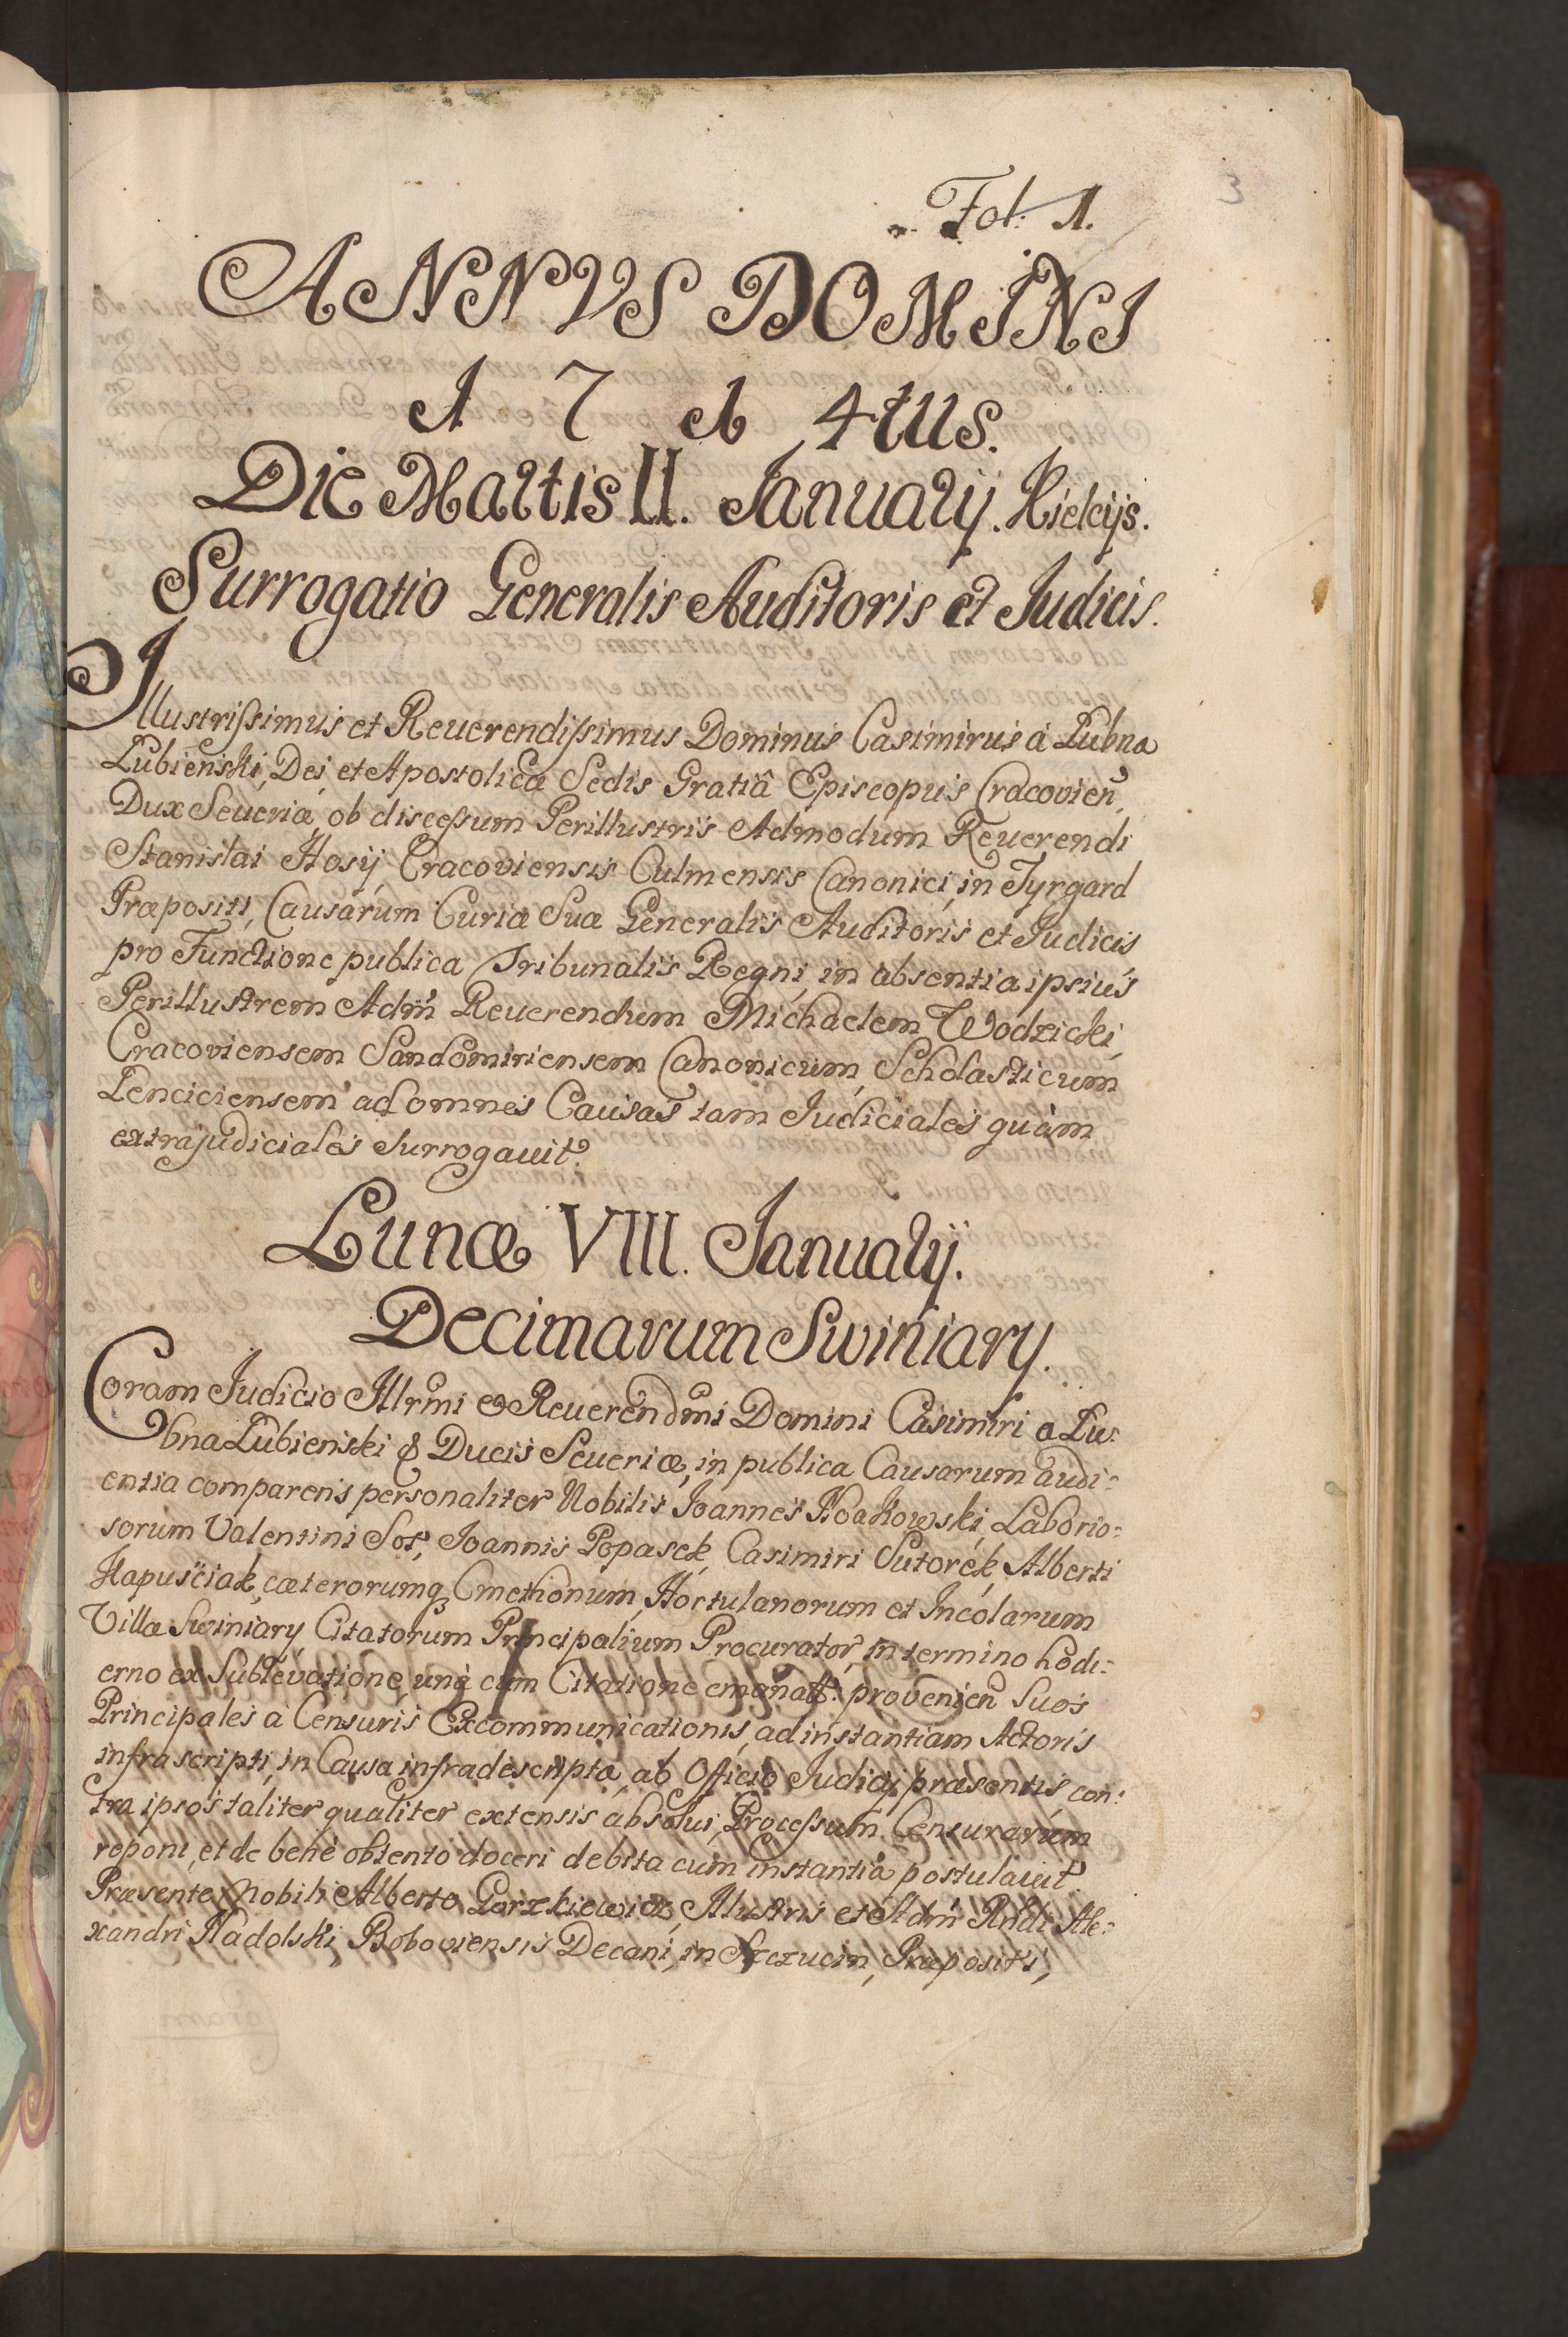 Fol: 1.
3
ANNVS DOMINI
1 7 1 4tus.
Die Martis II. Januarij. Kielcijs.
Surrogatio Generalis Auditoris et Judicis.
Illustrissimus et Reuerendissimus Dominus Casimirus à Lubna
Lubienski, Dei et Apostolicæ Sedis Gratiâ Episcopus Cracovien̄,
Dux Seueriæ, ob discessum Perillustris Admodum Reuerendi
Stanislai Hosij Cracoviensis Culmensis Canonici, in Tyrgard
Præpositi, Causarum Curiæ Suæ Generalis Auditoris et Judicis
pro Functione publica Tribunalis Regni, in absentia ipsius
Perillustrem Adm̄ Reuerendum Michaelem Wodzicki,
Cracoviensem Sandomiriensem Canonicum, Scholasticum
Lenciciensem ad omnes Causas tam Judiciales quàm
extrajudiciales surrogauit.
Lunæ VIII. Januarij.
Decimarum Swiniary.
Coram Judicio Illrm̄i & Reuerendm̄i Domini Casimiri a Lu-
bna Lubienski & Ducis Seueriæ, in publica Causarum audi-
entia comparens personaliter Nobilis Joannes Kłakowski, Laborio-
sorum Valentini Sos, Joannis Popasek, Casimiri Sutorek, Alberti
Hapusciak, cæterorumq Cmethonum, Hortulanorum et Incolarum
Villæ Swiniary Citatorum Principalium Procurator, in termino hodi-
erno ex Sublevatione, unà cum Citatione emanatt: provenien̄ suos
Principales à Censuris Excommunicationis, ad instantiam Actoris
infrascripti, in Causa infradescripta, ab Officio Judicij præsentis con-
tra ipsos taliter qualiter extensis absolui, Processum Censurarum
reponi, et de bene obtento doceri debita cum instantia postulauit.
Præsente Nobili Alberto Gorzkiewicz, Illustris et Adm̄ Rn̄di Ale-
xandri Nadolski, Boboviensis Decani, in Szczucin, Præpositi,